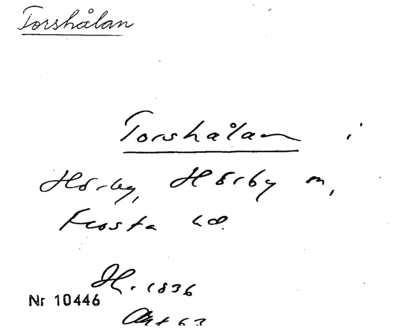 Torshålan
Torshålan i
Hörby, Hörby sn,
Frosta hd.
H. 1836
Nr 10446
Akt 63